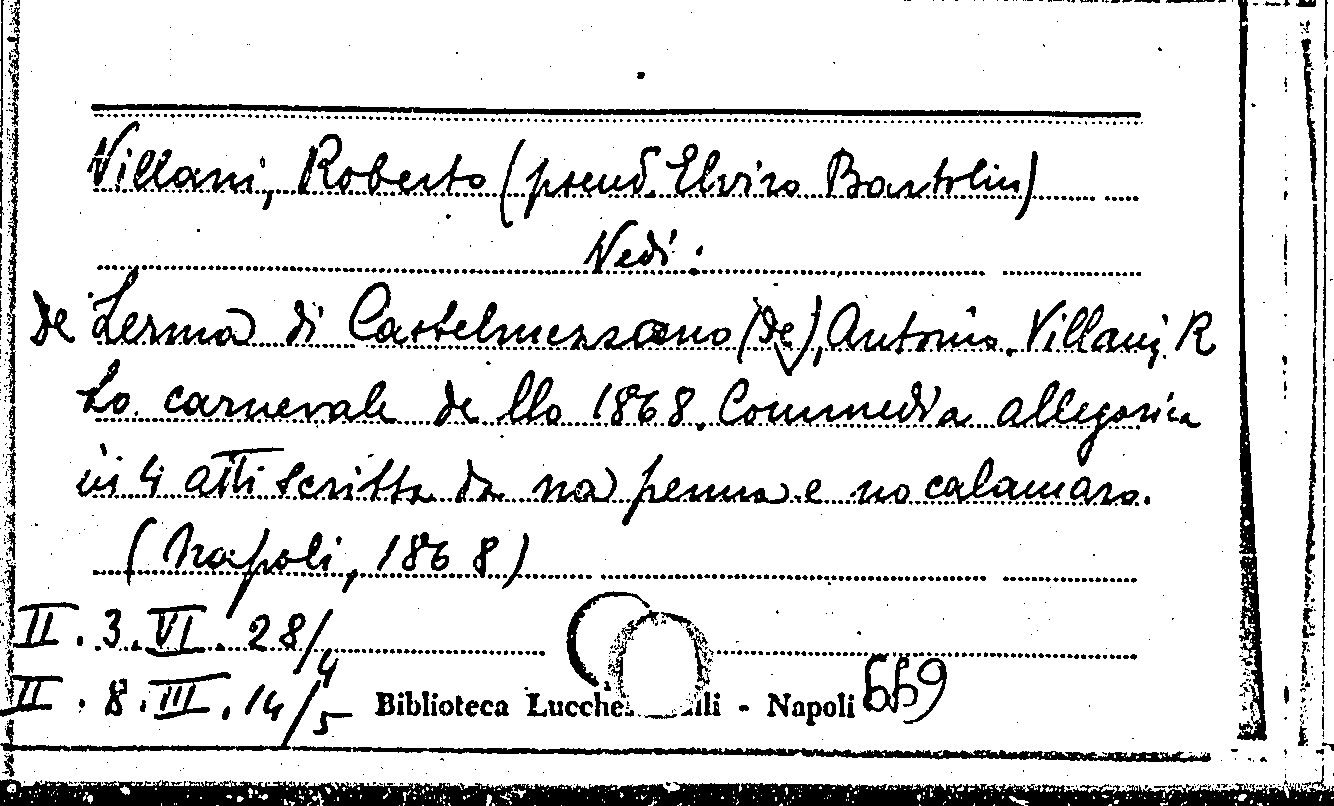 Villani, Roberto (pseud. Elviro Bartolin)
Vedi:
de Lerma di Castelmezzano (de), Antonio. Villani, R
Lo carnevale de llo 1868. Commedia allegorica
in 4 atti scritta da na penna e no calamaro.
(Napoli, 1868)
II. 3. VI. 28/4
II. 8. III. 14/5 Biblioteca - Napoli 669